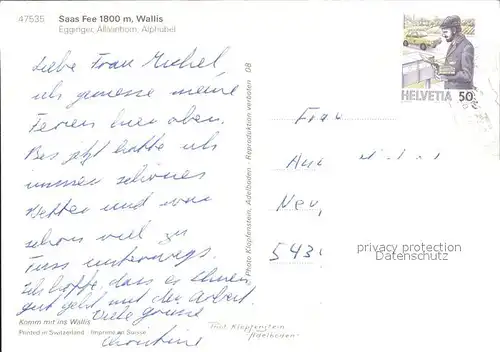 47535 Saas Fee 1800 m, Wallis
Egginger, Allalinhorn, Alphubel
Liebe Frau Michel,
ich geniesse meine
Ferien hier oben.
Bis jetzt hatte ich
immer schönes
Wetter und war
schon viel zu
Fuss unterwegs.
Ich hoffe, dass es Ihnen
gut geht mit der Arbeit.
Viele Grüsse
Christine
Komm mit ins Wallis
Printed in Switzerland Imprimé en Suisse
Photo Klopfenstein, Adelboden - Reproduktion verboten 08
HELVETIA 50
Frau
Neu,
543
privacy protection
Datenschutz
Phot Klopfenstein
Adelboden